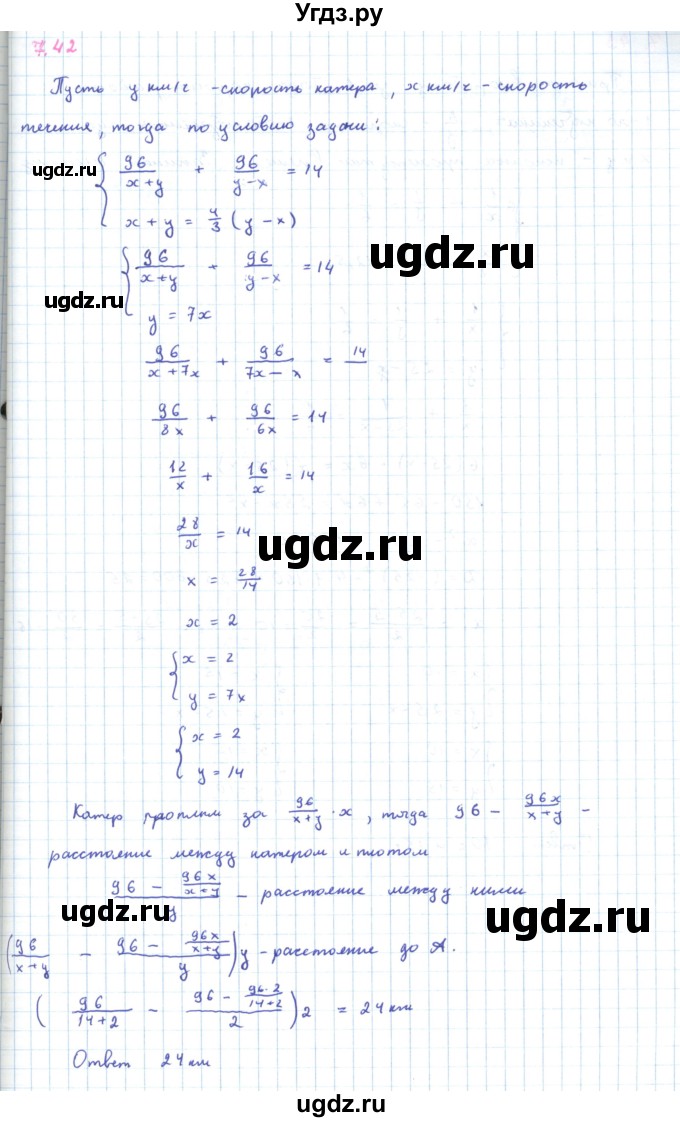 Угдз.ру
7.42
Пусть y км/ч - скорость катера, x км/ч - скорость
течения, тогда по условию задачи:
ugdz.ru
{ 96/(x+y) + 96/(y-x) = 14
x + y = 4/3 (y - x)
ugdz.ru
{ 96/(x+y) + 96/(y-x) = 14
ugdz.ru
y = 7x
96/(x+7x) + 96/(7x-x) = 14
96/8x + 96/6x = 14
ugdz.ru
12/x + 16/x = 14
28/x = 14
ugdz.ru
x = 28/14
x = 2
{ x = 2
y = 7x
ugdz.ru
{ x = 2
y = 14
Катер проплыл за 96/(x+y) · x, тогда 96 - 96x/(x+y) -
расстояние между катером и плотом
(96 - 96x/(x+y))/y - расстояние между ними
ugdz.ru
(96/(x+y) - (96 - 96x/(x+y))/y) y - расстояние до A.
(96/(14+2) - (96 - 96·2/(14+2))/2) 2 = 24 км
Ответ 24 км
ugdz.ru
ugdz.ru